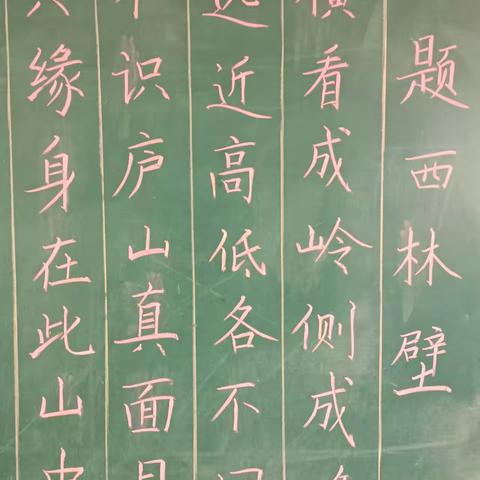 题西林壁
横看成岭侧成峰
远近高低各不同
不识庐山真面目
只缘身在此山中